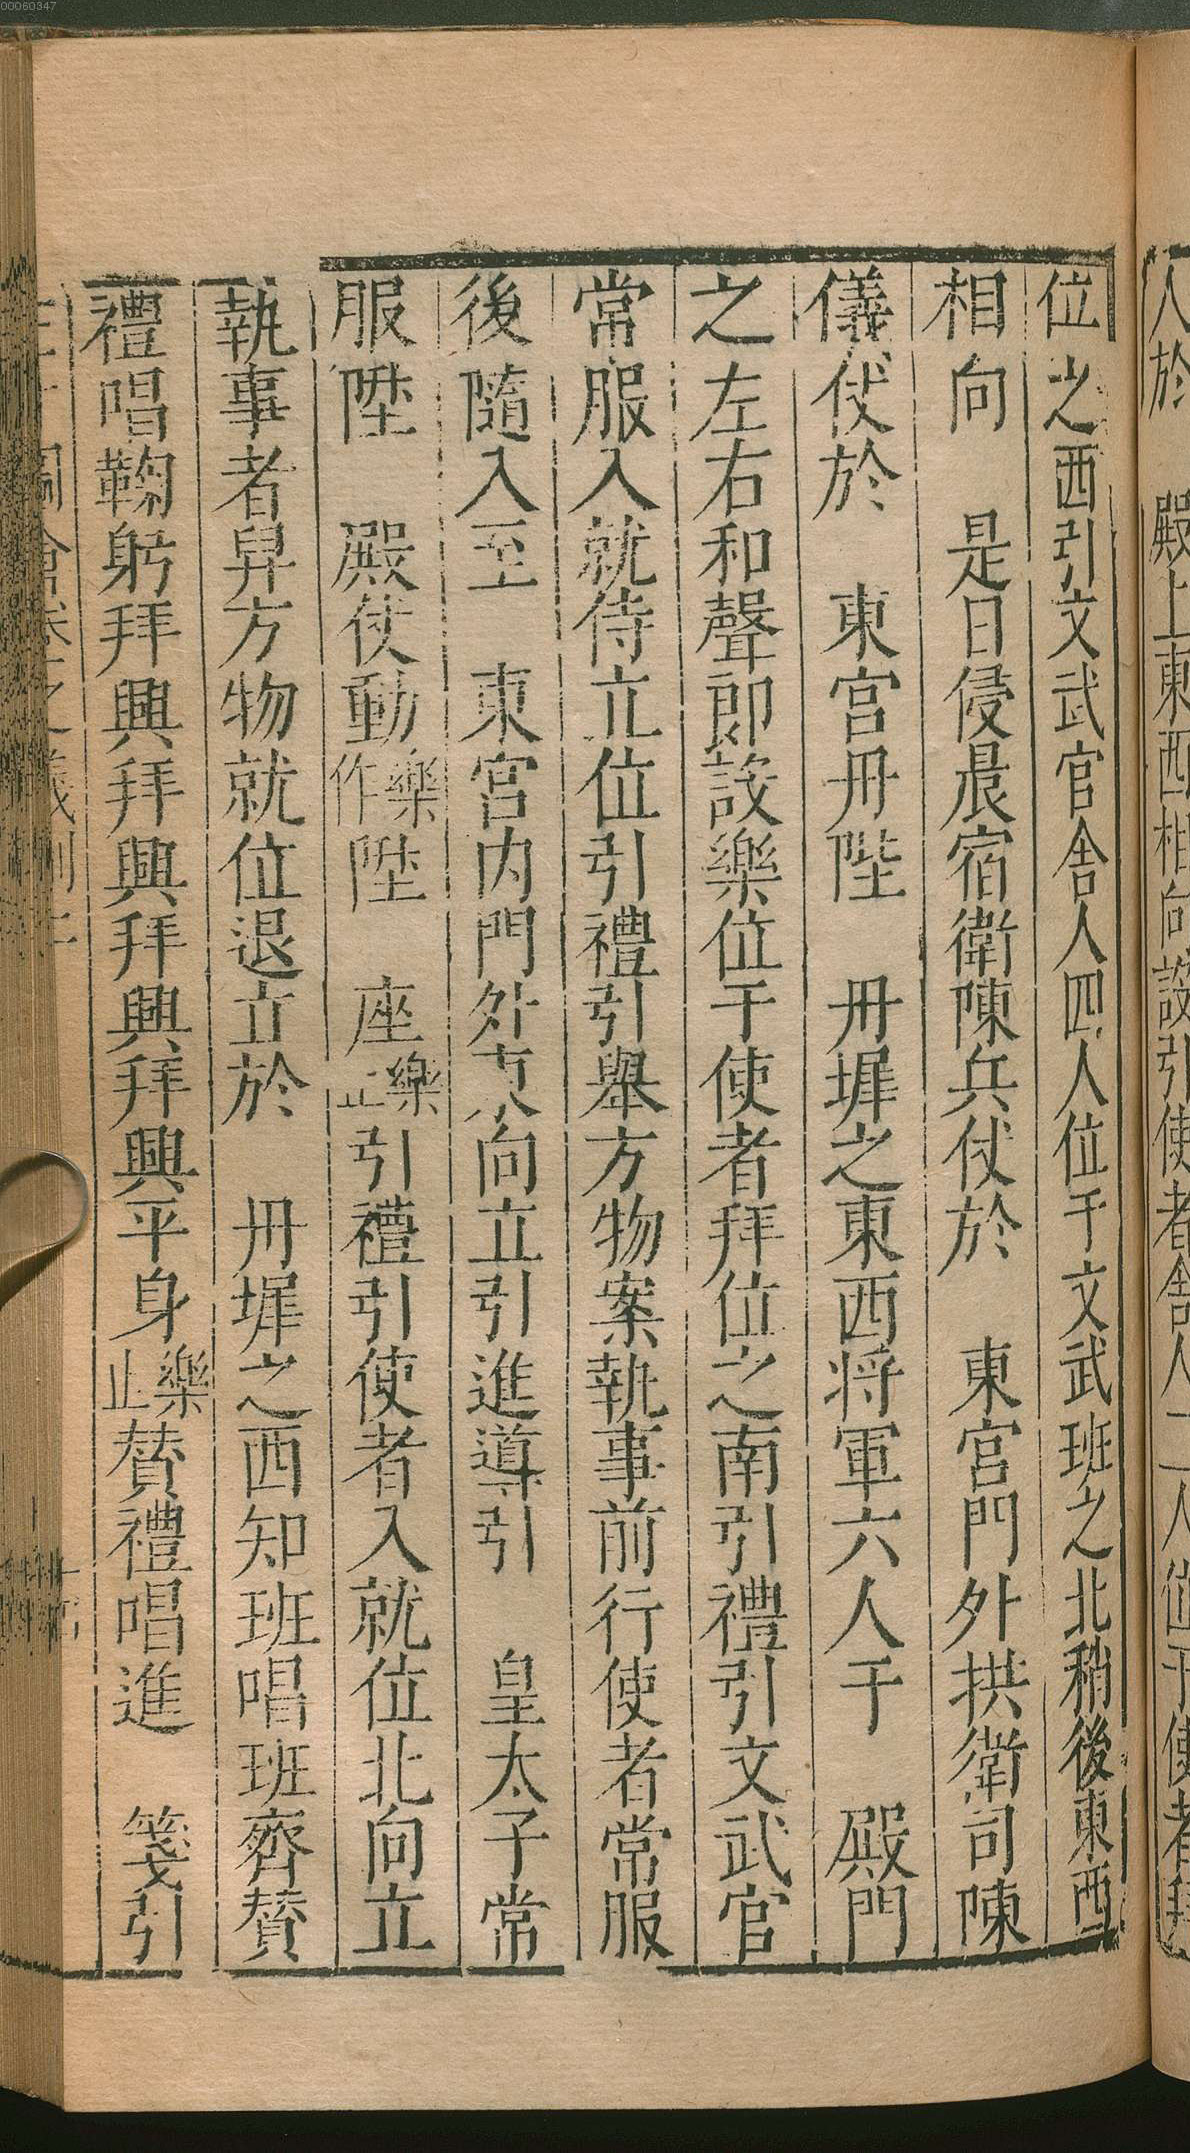 00060347
人於　殿上東西相向設引使者舍人二人位于使者拜
位之西引文武官舍人四人位于文武班之北稍後東西
相向　是日侵晨宿衛陳兵仗於　東宮門外拱衛司陳
儀仗於　東宮丹陛　丹墀之東西將軍六人于　殿門
之左右和聲郎設樂位于使者拜位之南引禮引文武官
常服入就侍立位引禮引舉方物案執事前行使者常服
後隨入至　東宮內門外東向立引進導引　皇太子常
服陞　殿仗動樂作陞　座樂止引禮引使者入就位北向立
執事者舁方物就位退立於　丹墀之西知班唱班齊贊
禮唱鞠躬拜興拜興拜興拜興平身樂止贊禮唱進　箋引